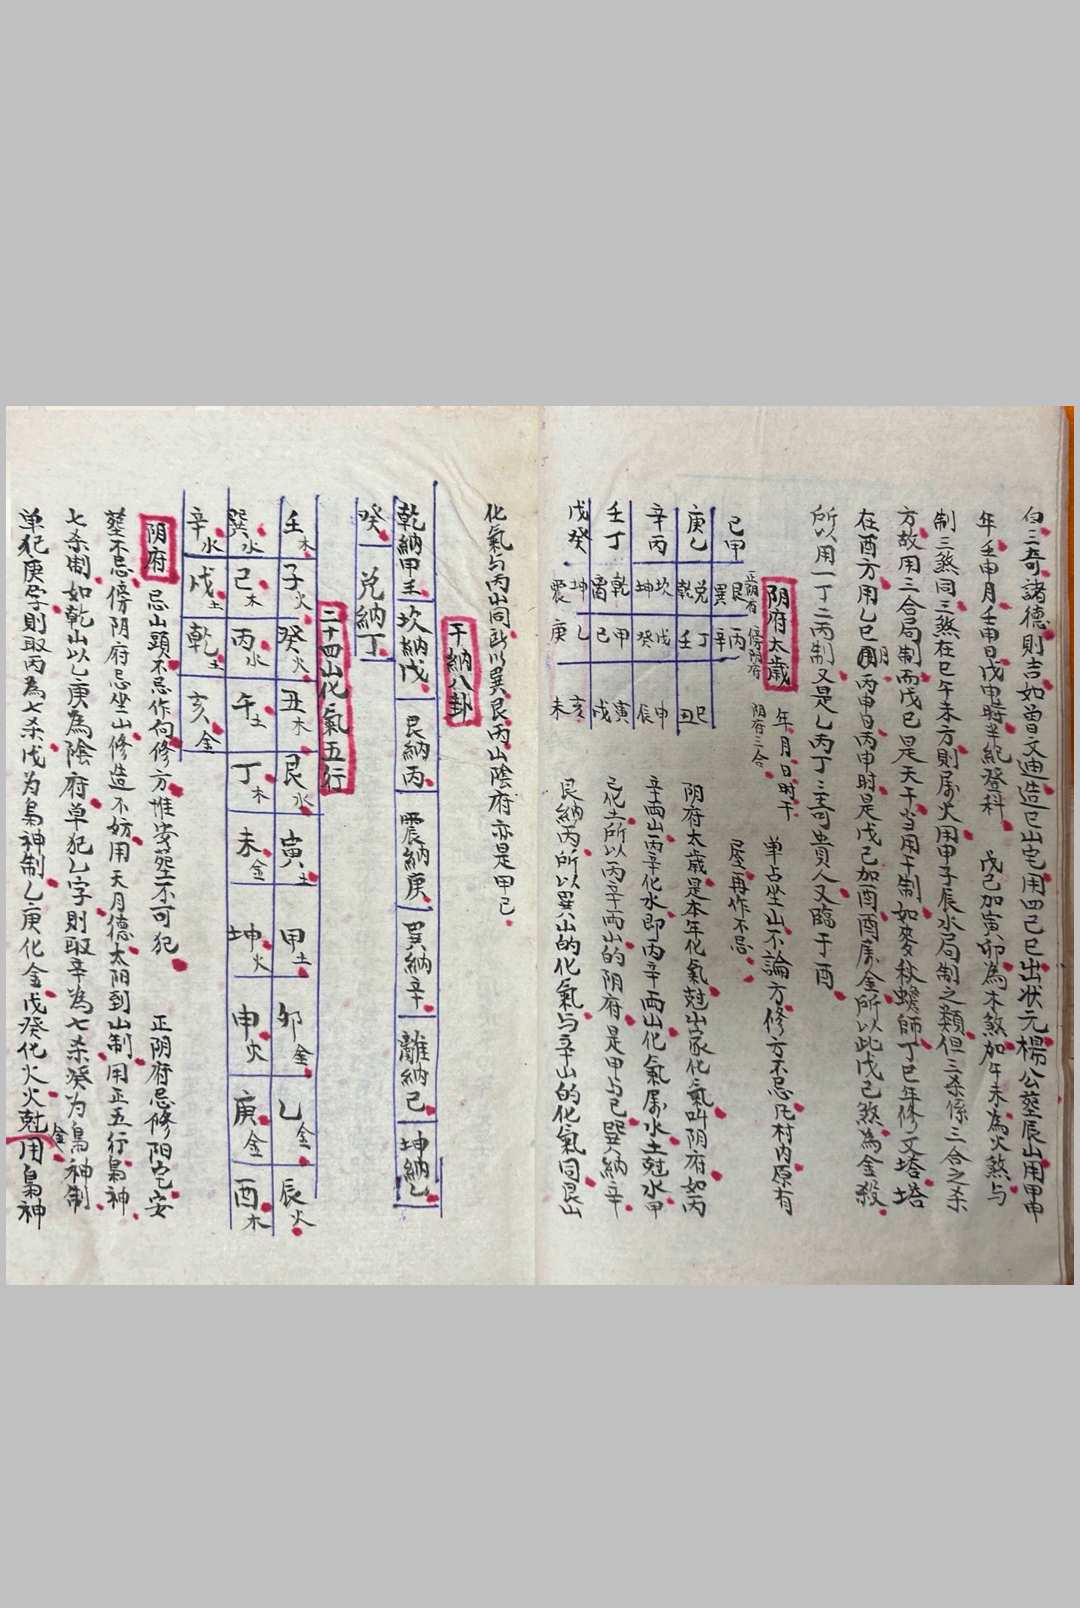 白三奇諸德則吉如曾文迪造巳山宅用四己巳出狀元楊公塟辰山用甲申
年壬申月壬申日戊申時半紀登科 戊己加寅卯為木煞加午未為火煞与
制三煞同三煞在巳午未方則属火用申子辰水局制之類但三杀係三合之杀
方故用三合局制而戊己是天干当用干制如麥秋蟾師丁巳年修文塔塔
在酉方用乙巳月丙申日丙申時是戊己加酉酉属金所以此戊己煞為金殺
所以用一丁二丙制又是乙丙丁三奇貴人又臨于酉
阴府太歳 年月日时干 单占坐山不論方修方不忌凡村内原有
屋再作不忌
正阴府 傍阴府 阴府三合
己甲 艮巽 丙辛
庚乙 兌乾 丁壬 巳丑
辛丙 坎坤 戊癸 申辰
壬丁 乾离 甲己 寅戌
戊癸 坤震 乙庚 亥未
阴府太歳是本年化氣尅山家化氣叫阴府如丙
辛两山丙辛化水即丙辛两山化氣属水土尅水甲
己化土所以丙辛两山的阴府是甲与己巽納辛
艮納丙所以巽山的化氣与辛山的化氣同艮山
化氣与丙山同所以巽艮丙山陰府亦是甲己
干納八卦
乾納甲壬 坎納戊 艮納丙 震納庚 巽納辛 離納己 坤納乙
癸 兑納丁
二十四山化氣五行
壬木 子火 癸火 丑木 艮水 寅土 甲土 卯金 乙金 辰火
巽水 己木 丙水 午土 丁木 未金 坤火 申火 庚金 酉木
辛水 戊土 乾土 亥金
阴府 忌山頭不忌作向修方惟安塟不可犯 正阴府忌修阳宅安
塟不忌傍阴府忌坐山修造不妨用天月德太阴到山制用正五行梟神
七杀制如乾山以乙庚為陰府单犯乙字則取辛為七杀癸为梟神制
单犯庚字則取丙為七杀戊为梟神制乙庚化金戊癸化火火尅金用梟神